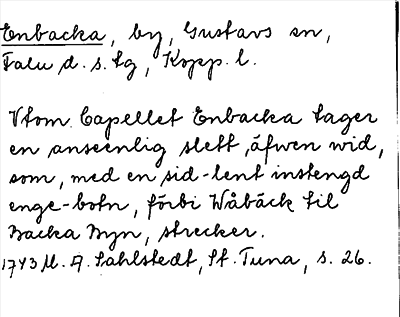 Enbacka, by, Gustavs sn,
Falu d. s. tg, Kopp. l.
Vtom Capellet Enbacka tager
en anseenlig slett, äfwen wid,
som, med en sid-lent instengd
enge-botn, förbi Wåbäck til
Backa Byn, strecker.
1743 M. A. Sahlstedt, St. Tuna, s. 26.